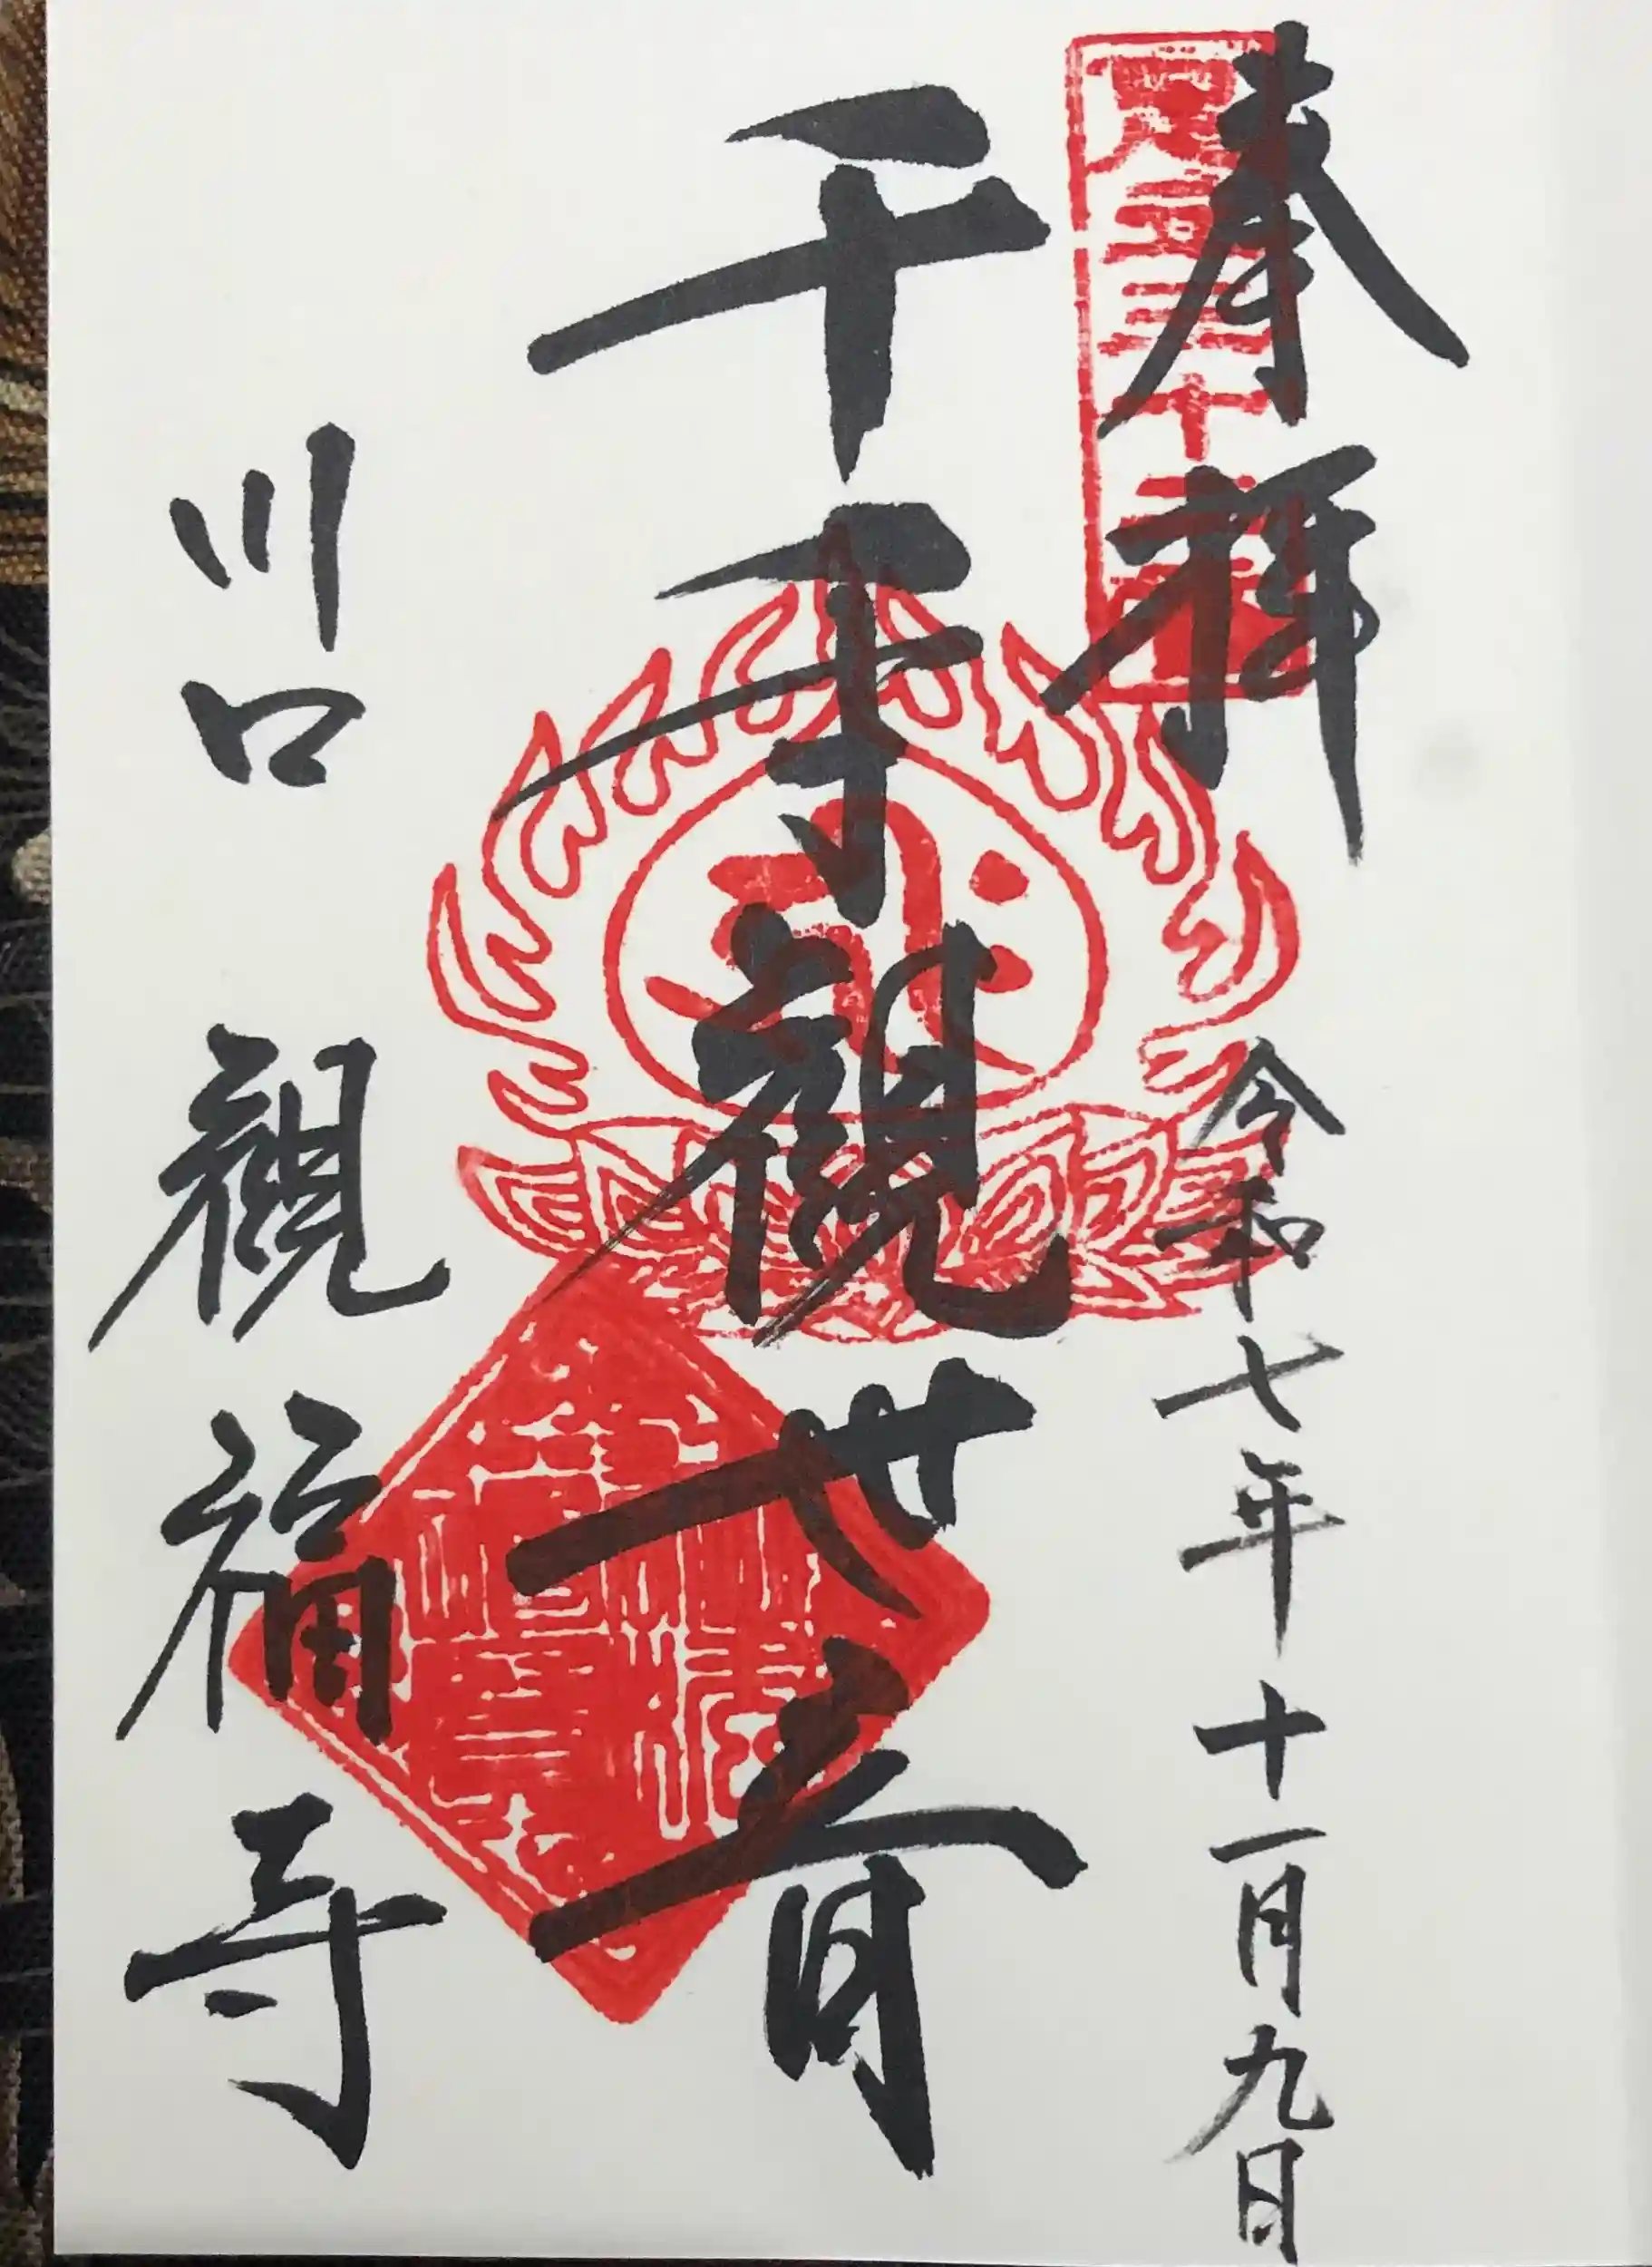 奉拝
令和七年十一月九日
千手観世音
川口
観福寺